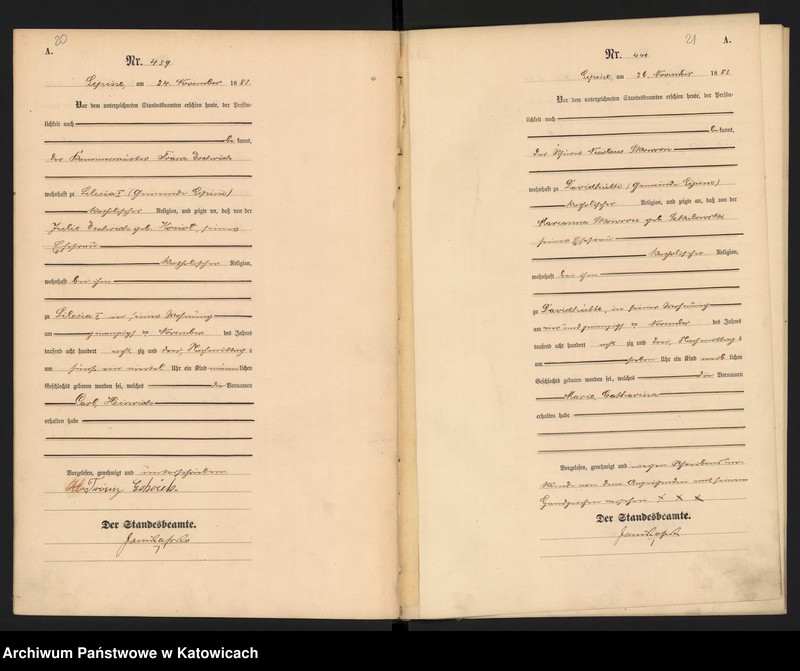 20
A.
Nr. 439
Lipine, am 24. November 1883.
Vor dem unterzeichneten Standesbeamten erschien heute, der Persön-
lichkeit nach
be kannt,
der Franz
wohnhaft zu Silesia I (Gemeinde Lipine)
katholischer Religion, und zeigte an, daß von der
Julie geb. , seiner
Ehefrau
katholischer Religion,
wohnhaft bei ihm
zu Silesia I in seiner Wohnung
am zwanzigsten November des Jahres
tausend acht hundert acht zig und drei, Nachmittags
um fünf ein viertel Uhr ein Kind männlichen
Geschlechts geboren worden sei, welches die Vornamen
Carl Heinrich
erhalten habe
Vorgelesen, genehmigt und unterschrieben
Franz
Der Standesbeamte.
21
A.
Nr. 440
Lipine, am 26. November 1883.
Vor dem unterzeichneten Standesbeamten erschien heute, der Persön-
lichkeit nach
be kannt,
der Nicolaus Skowron
wohnhaft zu Davidhütte (Gemeinde Lipine)
katholischer Religion, und zeigte an, daß von der
Marianna Skowron geb.
seiner Ehefrau
katholischer Religion,
wohnhaft bei ihm
zu Davidhütte, in seiner Wohnung
am vier und zwanzigsten November des Jahres
tausend acht hundert acht zig und drei, Nachmittags
um sieben Uhr ein Kind weiblichen
Geschlechts geboren worden sei, welches die Vornamen
Marie, Catharina
erhalten habe
Vorgelesen, genehmigt und wegen Schreibens un-
kunde von dem Anzeigenden mit seinem
Handzeichen versehen x x x
Der Standesbeamte.
Archiwum Państwowe w Katowicach